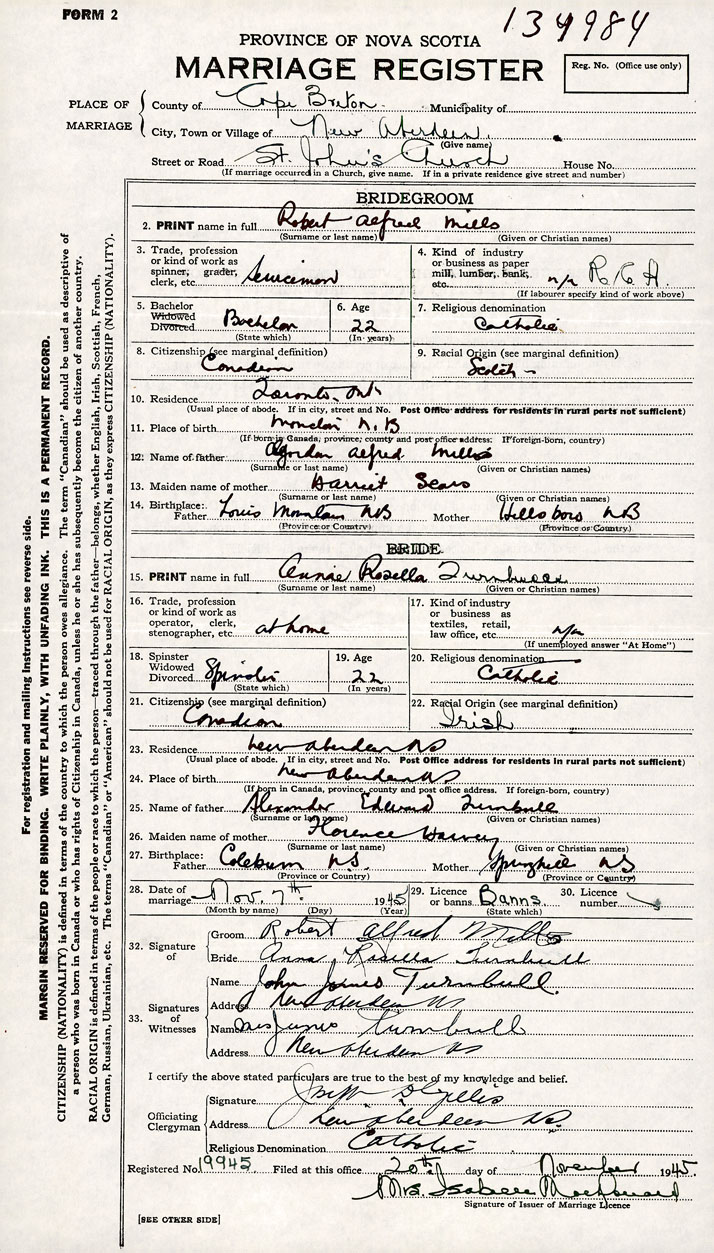 FORM 2
134984
PROVINCE OF NOVA SCOTIA
MARRIAGE REGISTER
Reg. No. (Office use only)
PLACE OF MARRIAGE
County of Cape Breton Municipality of
City, Town or Village of New Aberdeen
(Give name)
Street or Road St. John's Church House No.
(If marriage occurred in a Church, give name. If in a private residence give street and number)
BRIDEGROOM
2. PRINT name in full Robert Alfred Mills
(Surname or last name) (Given or Christian names)
3. Trade, profession or kind of work as spinner, grader, clerk, etc. Serviceman
4. Kind of industry or business as paper mill, lumber, bank, etc. n/a R.C.A.
(If labourer specify kind of work above)
5. Bachelor Widowed Divorced Bachelor
(State which)
6. Age 22
(In years)
7. Religious denomination
Catholic
8. Citizenship (see marginal definition)
Canadian
9. Racial Origin (see marginal definition)
Scotch
10. Residence Toronto, Ont
(Usual place of abode. If in city, street and No. Post Office address for residents in rural parts not sufficient)
11. Place of birth Moncton N.B
(If born in Canada, province, county and post office address. If foreign-born, country)
12. Name of father Gordon Alfred Mills
(Surname or last name) (Given or Christian names)
13. Maiden name of mother Harriet Sears
(Surname or last name) (Given or Christian names)
14. Birthplace: Father Louis Mountain NB Mother Hillsboro NB
(Province or Country) (Province or Country)
BRIDE
15. PRINT name in full Annie Rosella Turnbull
(Surname or last name) (Given or Christian names)
16. Trade, profession or kind of work as operator, clerk, stenographer, etc. at home
17. Kind of industry or business as textiles, retail, law office, etc. n/a
(If unemployed answer "At Home")
18. Spinster Widowed Divorced Spinster
(State which)
19. Age 22
(In years)
20. Religious denomination
Catholic
21. Citizenship (see marginal definition)
Canadian
22. Racial Origin (see marginal definition)
Irish
23. Residence New Aberdeen NS
(Usual place of abode. If in city, street and No. Post Office address for residents in rural parts not sufficient)
24. Place of birth New Aberdeen NS
(If born in Canada, province, county and post office address. If foreign-born, country)
25. Name of father Alexander Edward Turnbull
(Surname or last name) (Given or Christian names)
26. Maiden name of mother Florence Harvey
(Surname or last name) (Given or Christian names)
27. Birthplace: Father Coleburn N.S. Mother Springhill NS
(Province or Country) (Province or Country)
28. Date of marriage Nov. 7th 1945
(Month by name) (Day) (Year)
29. Licence or banns Banns
(State which)
30. Licence number
32. Signature of
Groom Robert Alfred Mills
Bride Anna Rosella Turnbull
33. Signatures of Witnesses
Name John James Turnbull
Address New Aberdeen NS
Name Mrs James Turnbull
Address New Aberdeen NS
I certify the above stated particulars are true to the best of my knowledge and belief.
Officiating Clergyman
Signature
Address New Aberdeen N.S.
Religious Denomination Catholic
Registered No. 19945 Filed at this office 20th day of November 1945.
Mrs. Isabell
Signature of Issuer of Marriage Licence
[SEE OTHER SIDE]
For registration and mailing instructions see reverse side.
MARGIN RESERVED FOR BINDING. WRITE PLAINLY, WITH UNFADING INK. THIS IS A PERMANENT RECORD.
CITIZENSHIP (NATIONALITY) is defined in terms of the country to which the person owes allegiance. The term "Canadian" should be used as descriptive of
a person who was born in Canada or who has rights of Citizenship in Canada, unless he or she has subsequently become the citizen of another country.
RACIAL ORIGIN is defined in terms of the people or race to which the person—traced through the father—belongs, whether English, Irish, Scottish, French,
German, Russian, Ukrainian, etc. The terms "Canadian" or "American" should not be used for RACIAL ORIGIN, as they express CITIZENSHIP (NATIONALITY).